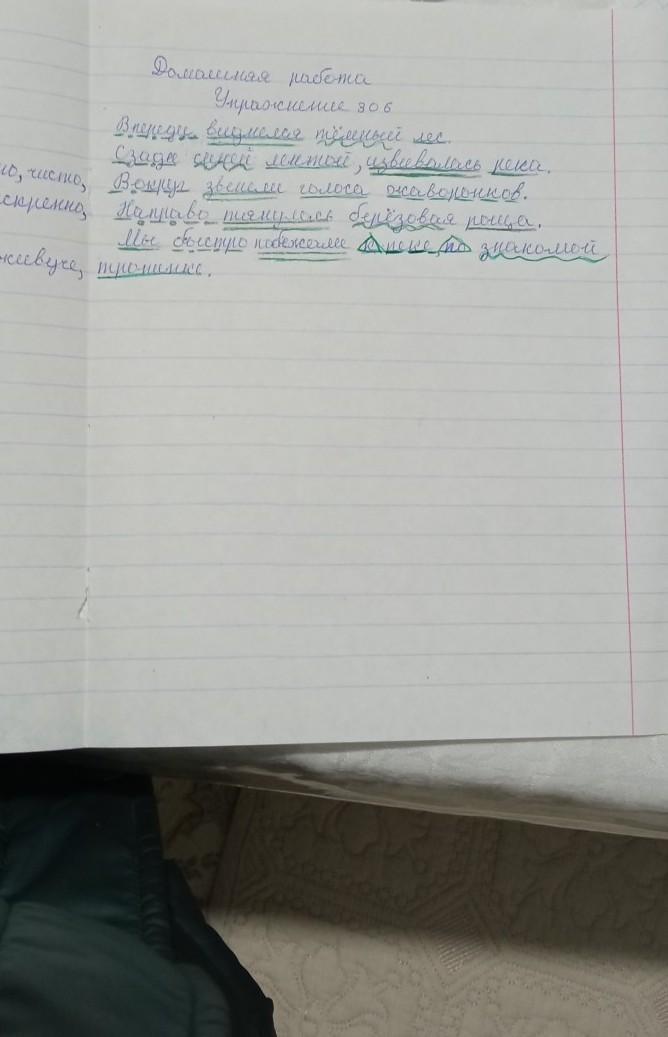 Домашняя работа
Упражнение 306
Впереди виднелся тёмный лес.
Сзади синей лентой, извивалась река.
но, чисто,
Вокруг звенели голоса жаворонков.
скренно,
Направо тянулась берёзовая роща.
Мы быстро побежали к реке, по знакомой
живуче,
тропинке.